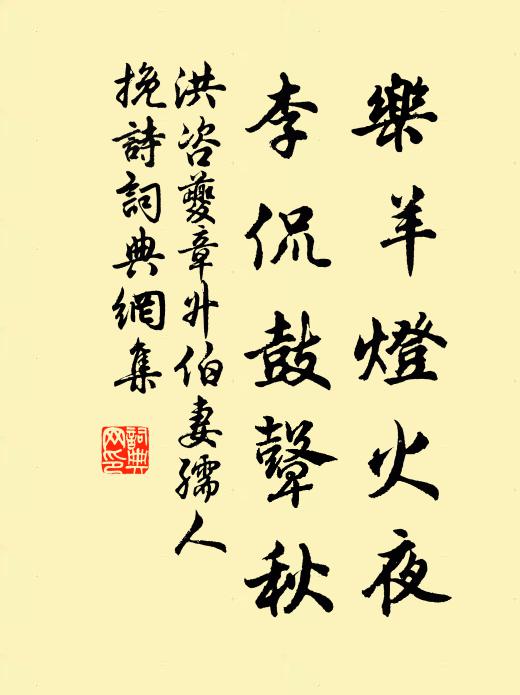 樂羊燈火夜
李侃鼓鼙秋
洪咨夔章升伯妻孺人
挽詩詞典網集
詞典
网印